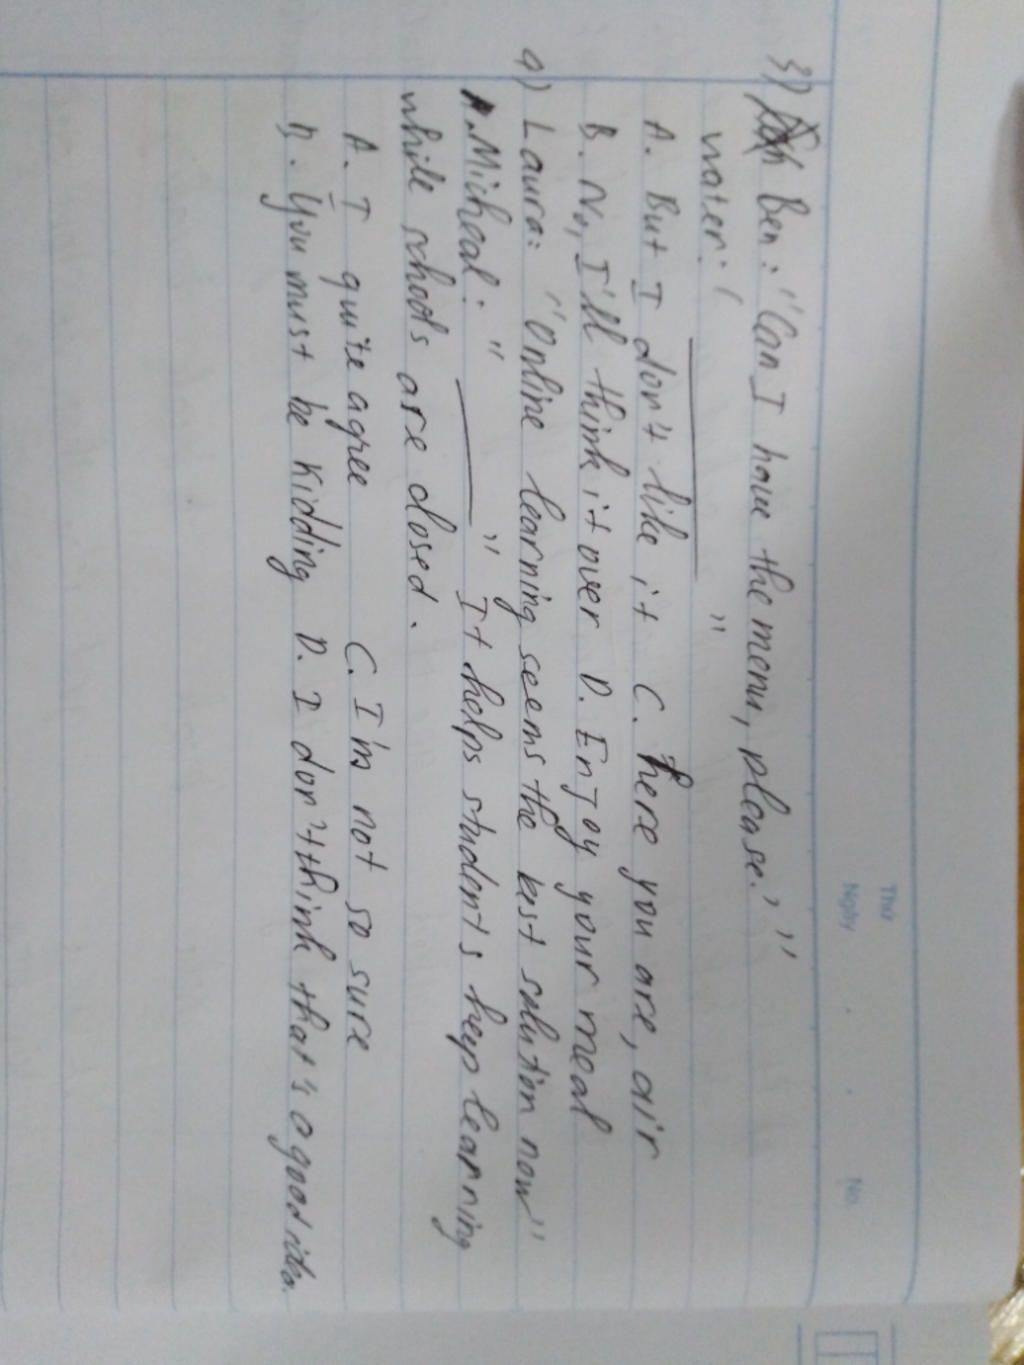 Thứ
Ngày . . No.
3) Ben: "Can I have the menu, please?"
water: " ______ "
A. But I don't like it C. here you are, air
B. No, I'll think it over D. Enjoy your meal
4) Laura: "Online learning seems the best solution now"
Micheal: " ______ " It helps students keep learning
while schools are closed.
A. I quite agree C. I'm not so sure
B. You must be kidding D. I don't think that's a good idea.